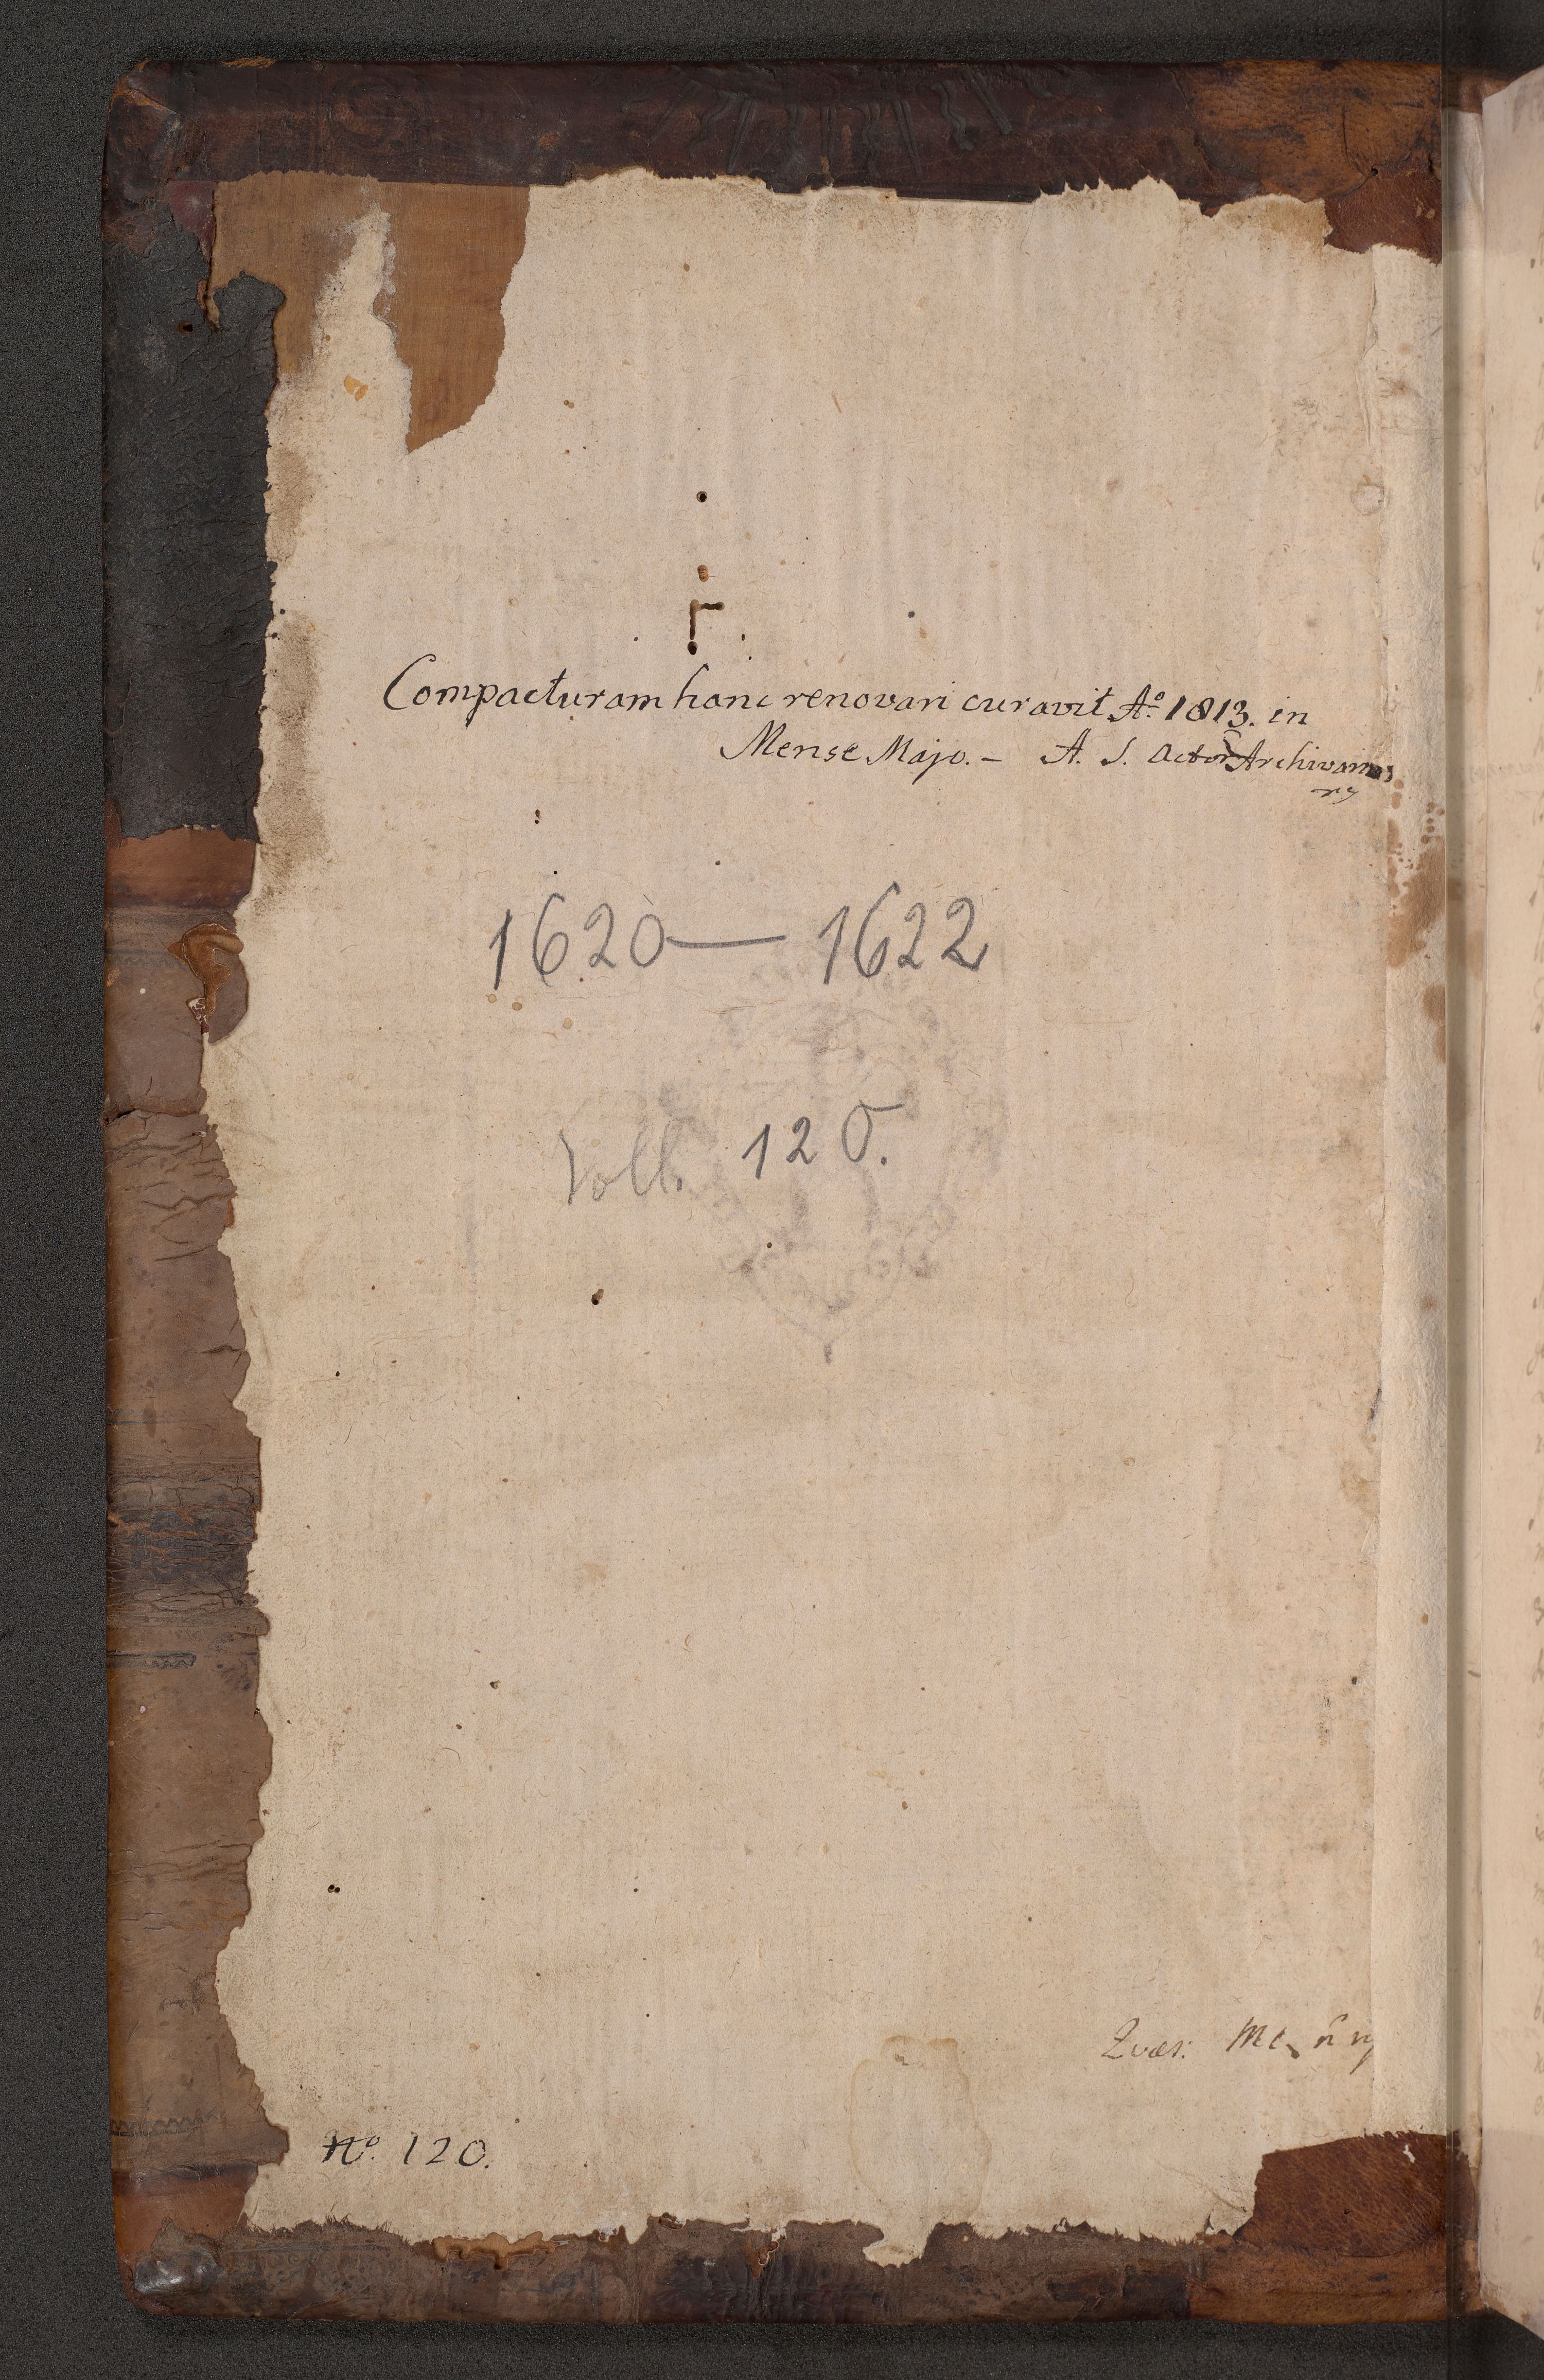 Compacturam hanc renovari curavit Aº 1813. in
Mense Majo. – A. S. Actor Archivarius
1620 — 1622
Voll. 120.
Nº. 120.